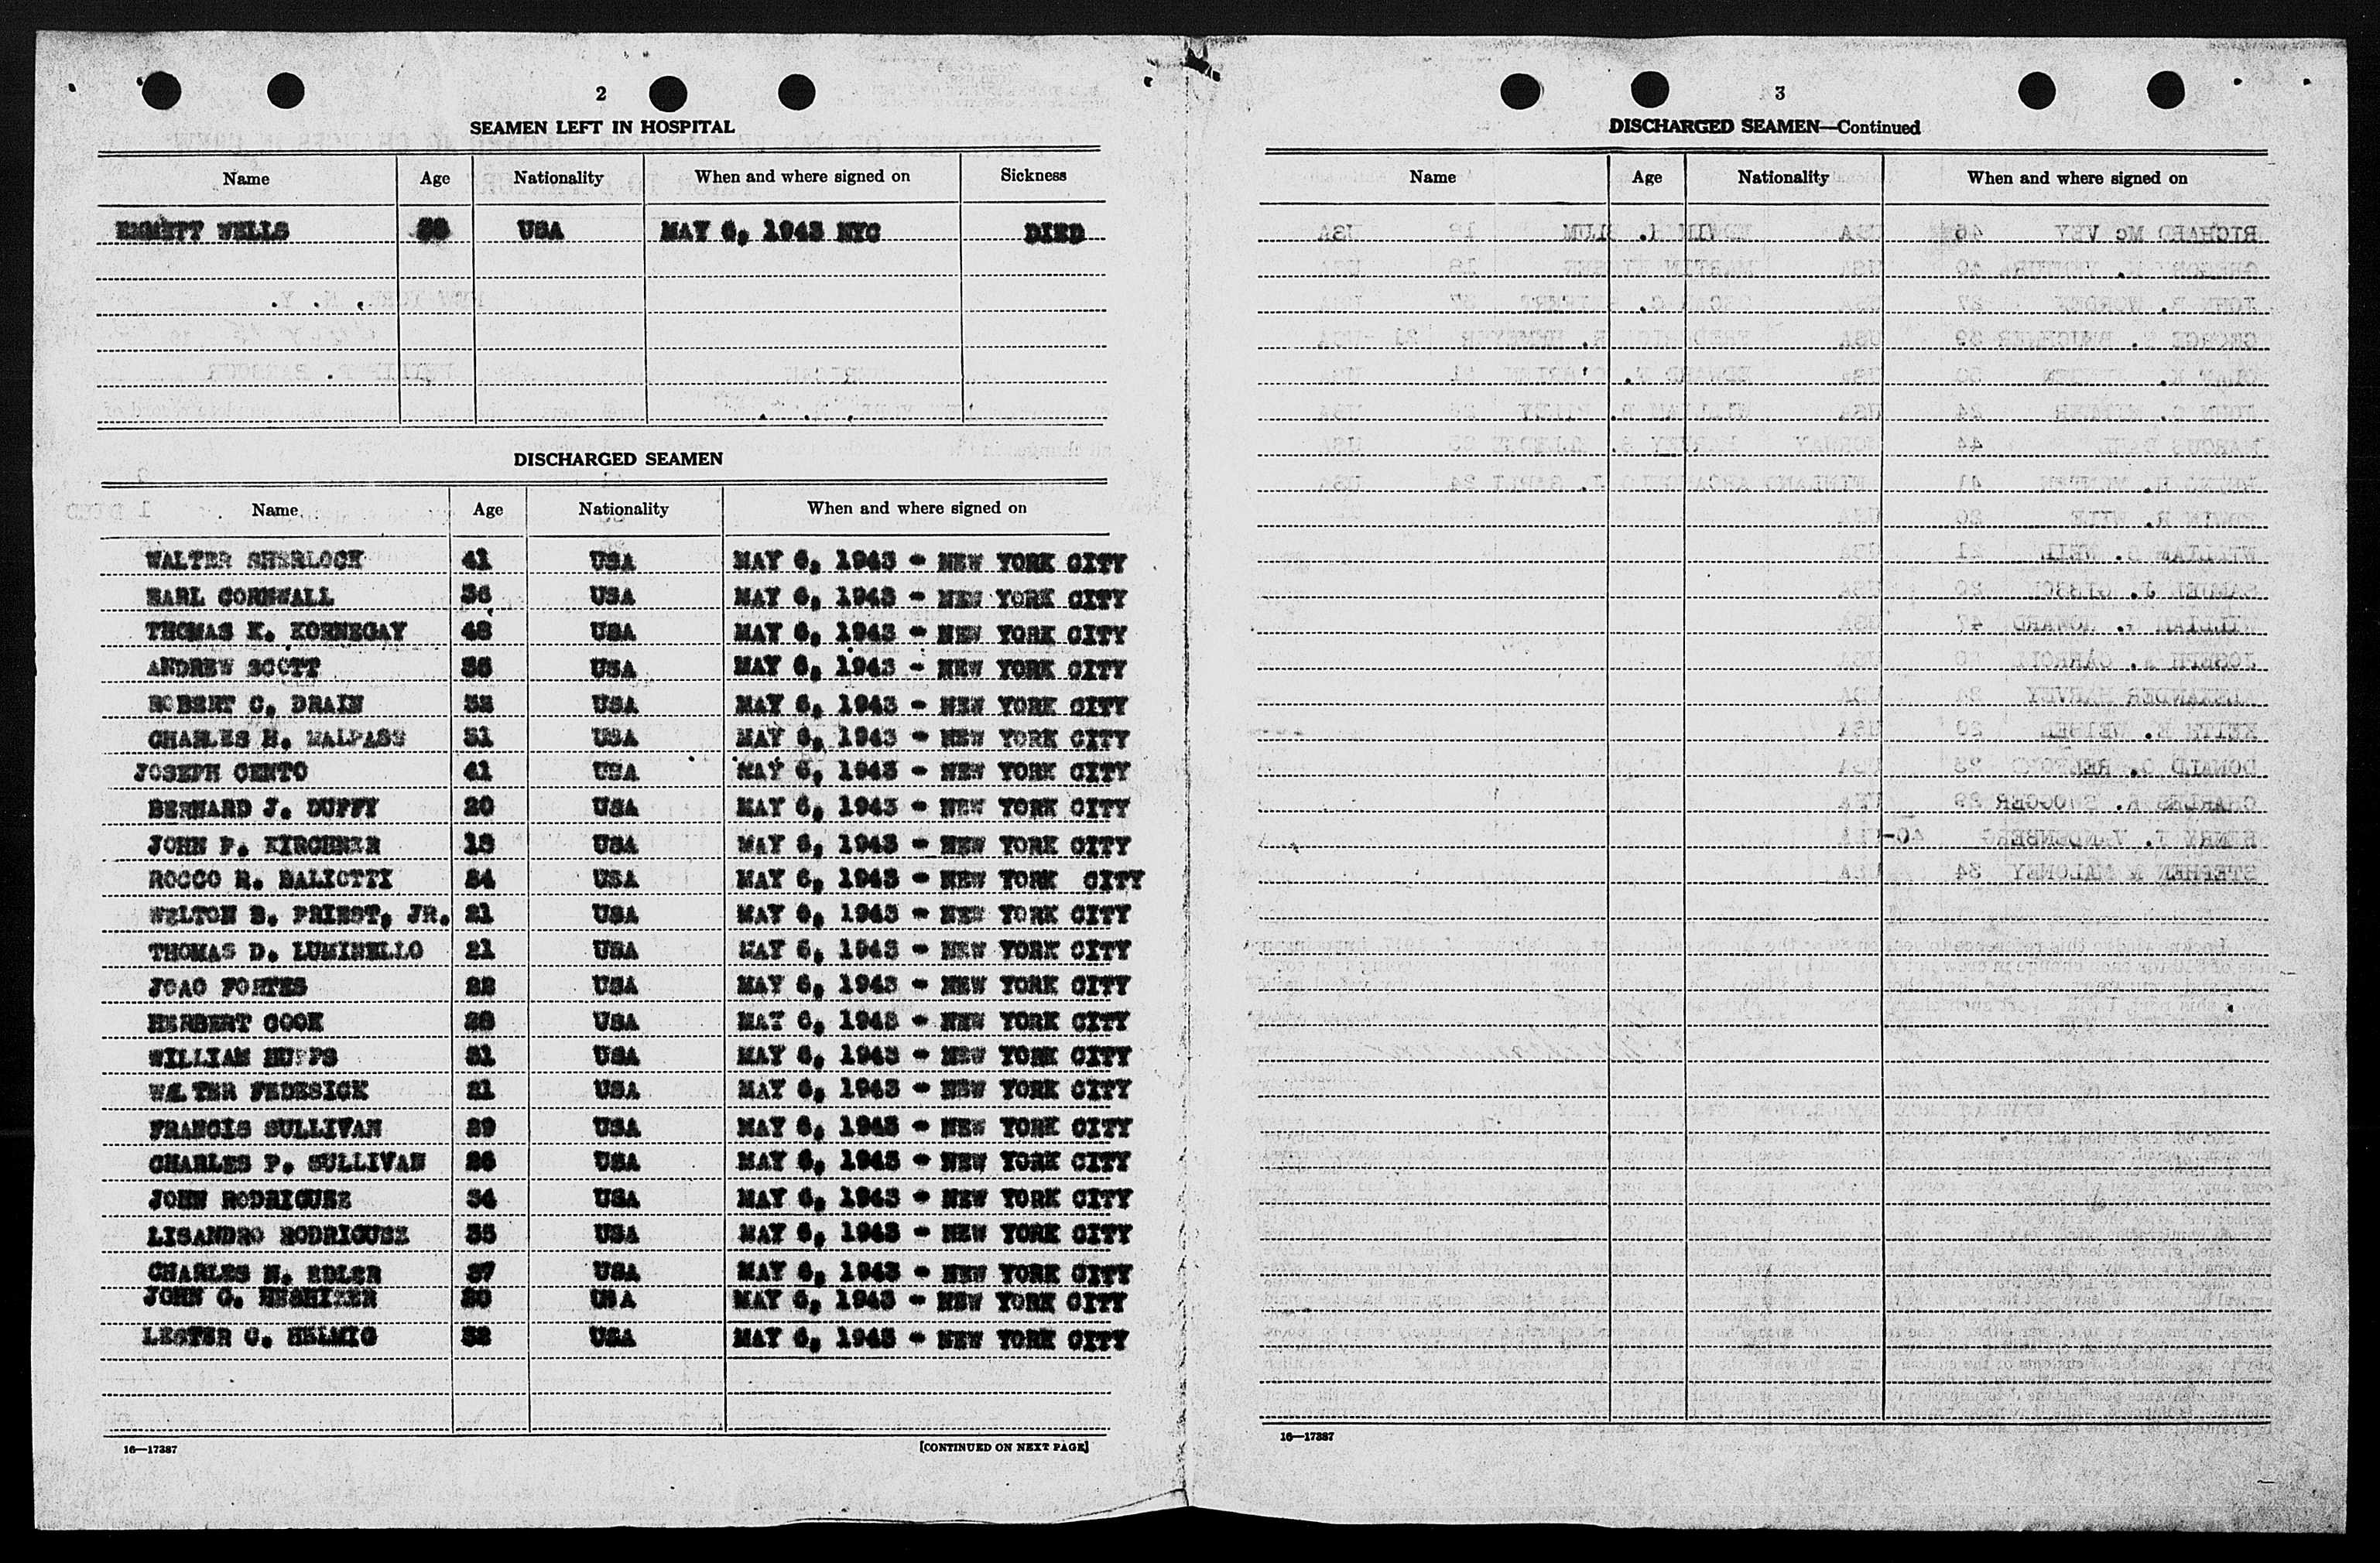 2
SEAMEN LEFT IN HOSPITAL
Name Age Nationality When and where signed on Sickness
EMMETT WELLS USA MAY 6, 1943 NYC DIED
DISCHARGED SEAMEN
Name Age Nationality When and where signed on
WALTER SHERLOCK 41 USA MAY 6, 1943 - NEW YORK CITY
EARL CORNWALL 36 USA MAY 6, 1943 - NEW YORK CITY
THOMAS K. KORNEGAY 48 USA MAY 6, 1943 - NEW YORK CITY
ANDREW SCOTT USA MAY 6, 1943 - NEW YORK CITY
ROBERT C. DRAIN USA MAY 6, 1943 - NEW YORK CITY
CHARLES H. MALPASS 31 USA MAY 6, 1943 - NEW YORK CITY
JOSEPH CENTO 41 USA MAY 6, 1943 - NEW YORK CITY
BERNARD J. DUFFY 20 USA MAY 6, 1943 - NEW YORK CITY
JOHN P. KIRCHNER 18 USA MAY 6, 1943 - NEW YORK CITY
ROCCO R. BALIOTTI 24 USA MAY 6, 1943 - NEW YORK CITY
WELTON B. PRIEST, JR. 21 USA MAY 6, 1943 - NEW YORK CITY
THOMAS D. LUMINELLO 21 USA MAY 6, 1943 - NEW YORK CITY
JOAO FORTES 22 USA MAY 6, 1943 - NEW YORK CITY
HERBERT COOK USA MAY 6, 1943 - NEW YORK CITY
WILLIAM HUPPS 31 USA MAY 6, 1943 - NEW YORK CITY
WALTER FEDESICK 21 USA MAY 6, 1943 - NEW YORK CITY
FRANCIS SULLIVAN 29 USA MAY 6, 1943 - NEW YORK CITY
CHARLES P. SULLIVAN 26 USA MAY 6, 1943 - NEW YORK CITY
JOHN RODRIGUEZ 34 USA MAY 6, 1943 - NEW YORK CITY
LISANDRO RODRIGUEZ 35 USA MAY 6, 1943 - NEW YORK CITY
CHARLES N. EDLER 37 USA MAY 6, 1943 - NEW YORK CITY
JOHN G. USA MAY 6, 1943 - NEW YORK CITY
LESTER C. HELMIG 32 USA MAY 6, 1943 - NEW YORK CITY
16—17387 [CONTINUED ON NEXT PAGE]
3
DISCHARGED SEAMEN—Continued
Name Age Nationality When and where signed on
16—17387